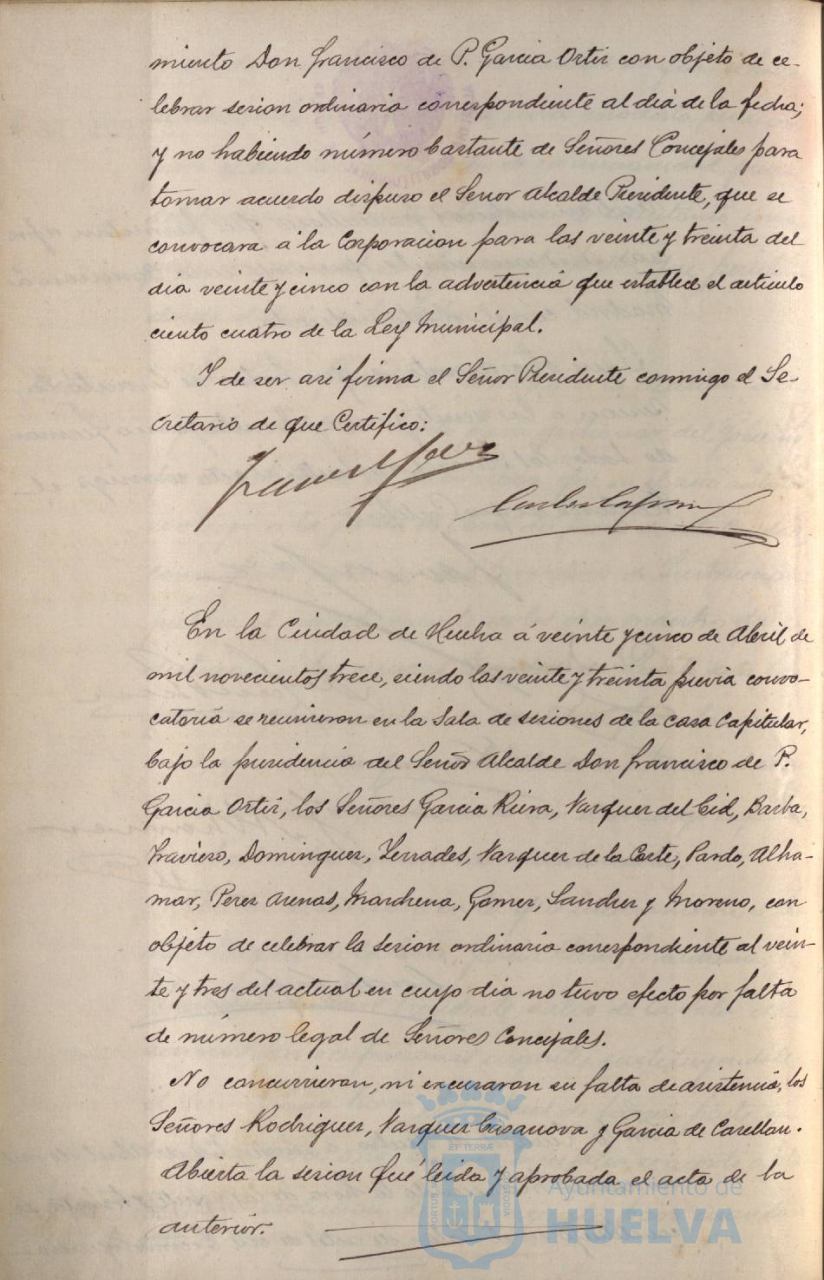 miento Don Francisco de P. Garcia Ortiz con objeto de ce-
lebrar sesion ordinaria correspondiente al dia de la fecha;
y no habiendo número bastante de Señores Concejales para
tomar acuerdo dispuso el Señor Alcalde Presidente, que se
convocara á la Corporacion para las veinte y treinta del
dia veinte y cinco con la advertencia que establece el articulo
ciento cuatro de la Ley Municipal.
Y de ser asi firma el Señor Presidente conmigo el Se-
cretario de que Certifico:
En la Ciudad de Huelva á veinte y cinco de Abril de
mil novecientos trece, siendo las veinte y treinta previa convo-
catoria se reunieron en la Sala de sesiones de la casa Capitular,
bajo la presidencia del Señor Alcalde Don Francisco de P.
Garcia Ortiz, los Señores Garcia Riera, Vazquez del Cid, Barba,
Traviero, Dominguez, Terrades, Vazquez de la Corte, Pardo, Alha-
mar, Perez Arenas, Marchena, Gomez, Sanchez y Moreno, con
objeto de celebrar la sesion ordinaria correspondiente al vein-
te y tres del actual en cuyo dia no tuvo efecto por falta
de número legal de Señores Concejales.
No concurrieron, ni excusaron su falta de asistencia, los
Señores Rodriguez, Vazquez Casanova y Garcia de Castellan.
Abierta la sesion fué leida y aprobada el acta de la
anterior.
Ayuntamiento de
HUELVA